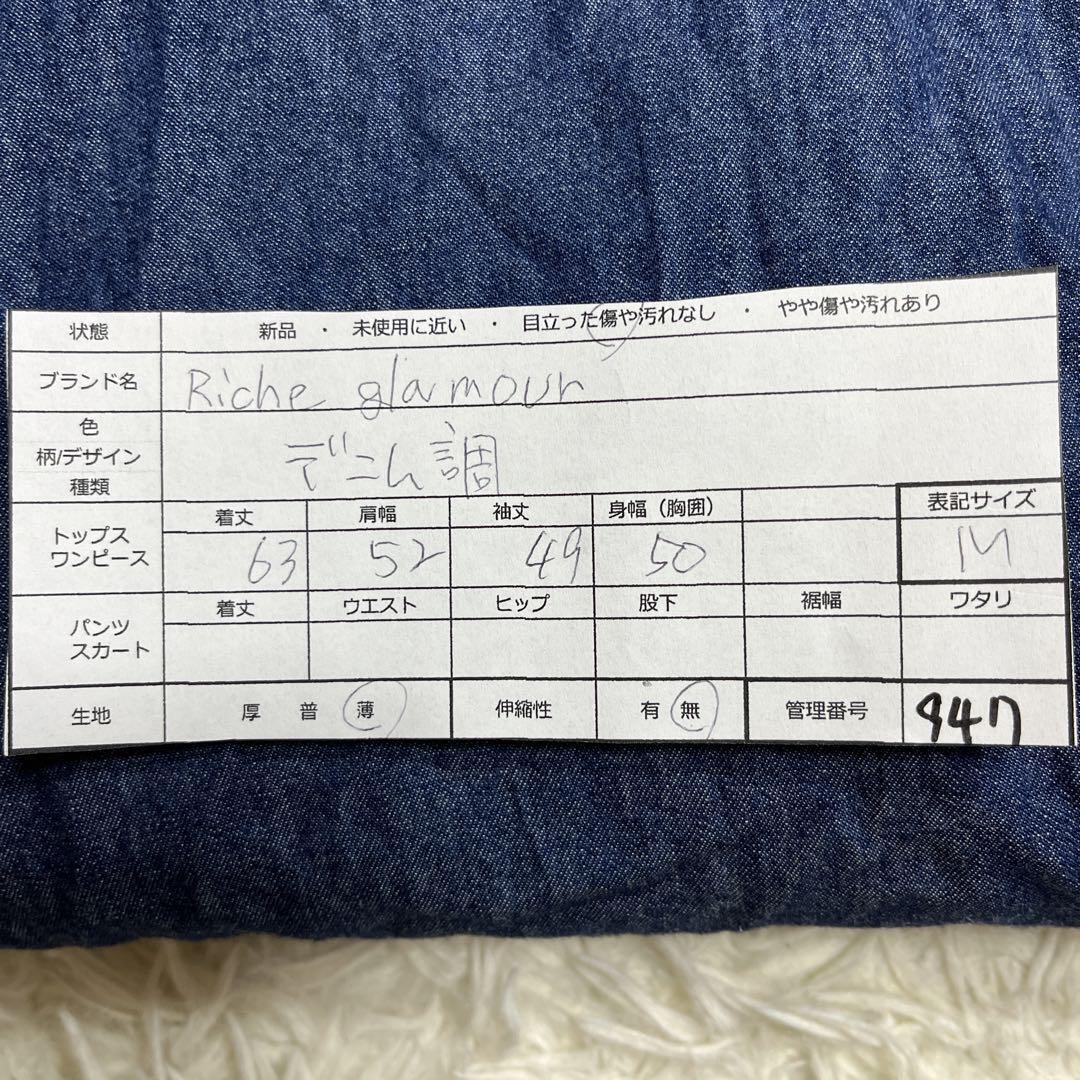 状態 新品 ・ 未使用に近い ・ 目立った傷や汚れなし ・ やや傷や汚れあり
ブランド名 Riche glamour
色
柄/デザイン デニム調
種類
トップス ワンピース 着丈 肩幅 袖丈 身幅（胸囲） 表記サイズ
63 52 49 50 M
パンツ スカート 着丈 ウエスト ヒップ 股下 裾幅 ワタリ
生地 厚 普 薄 伸縮性 有 無 管理番号 947